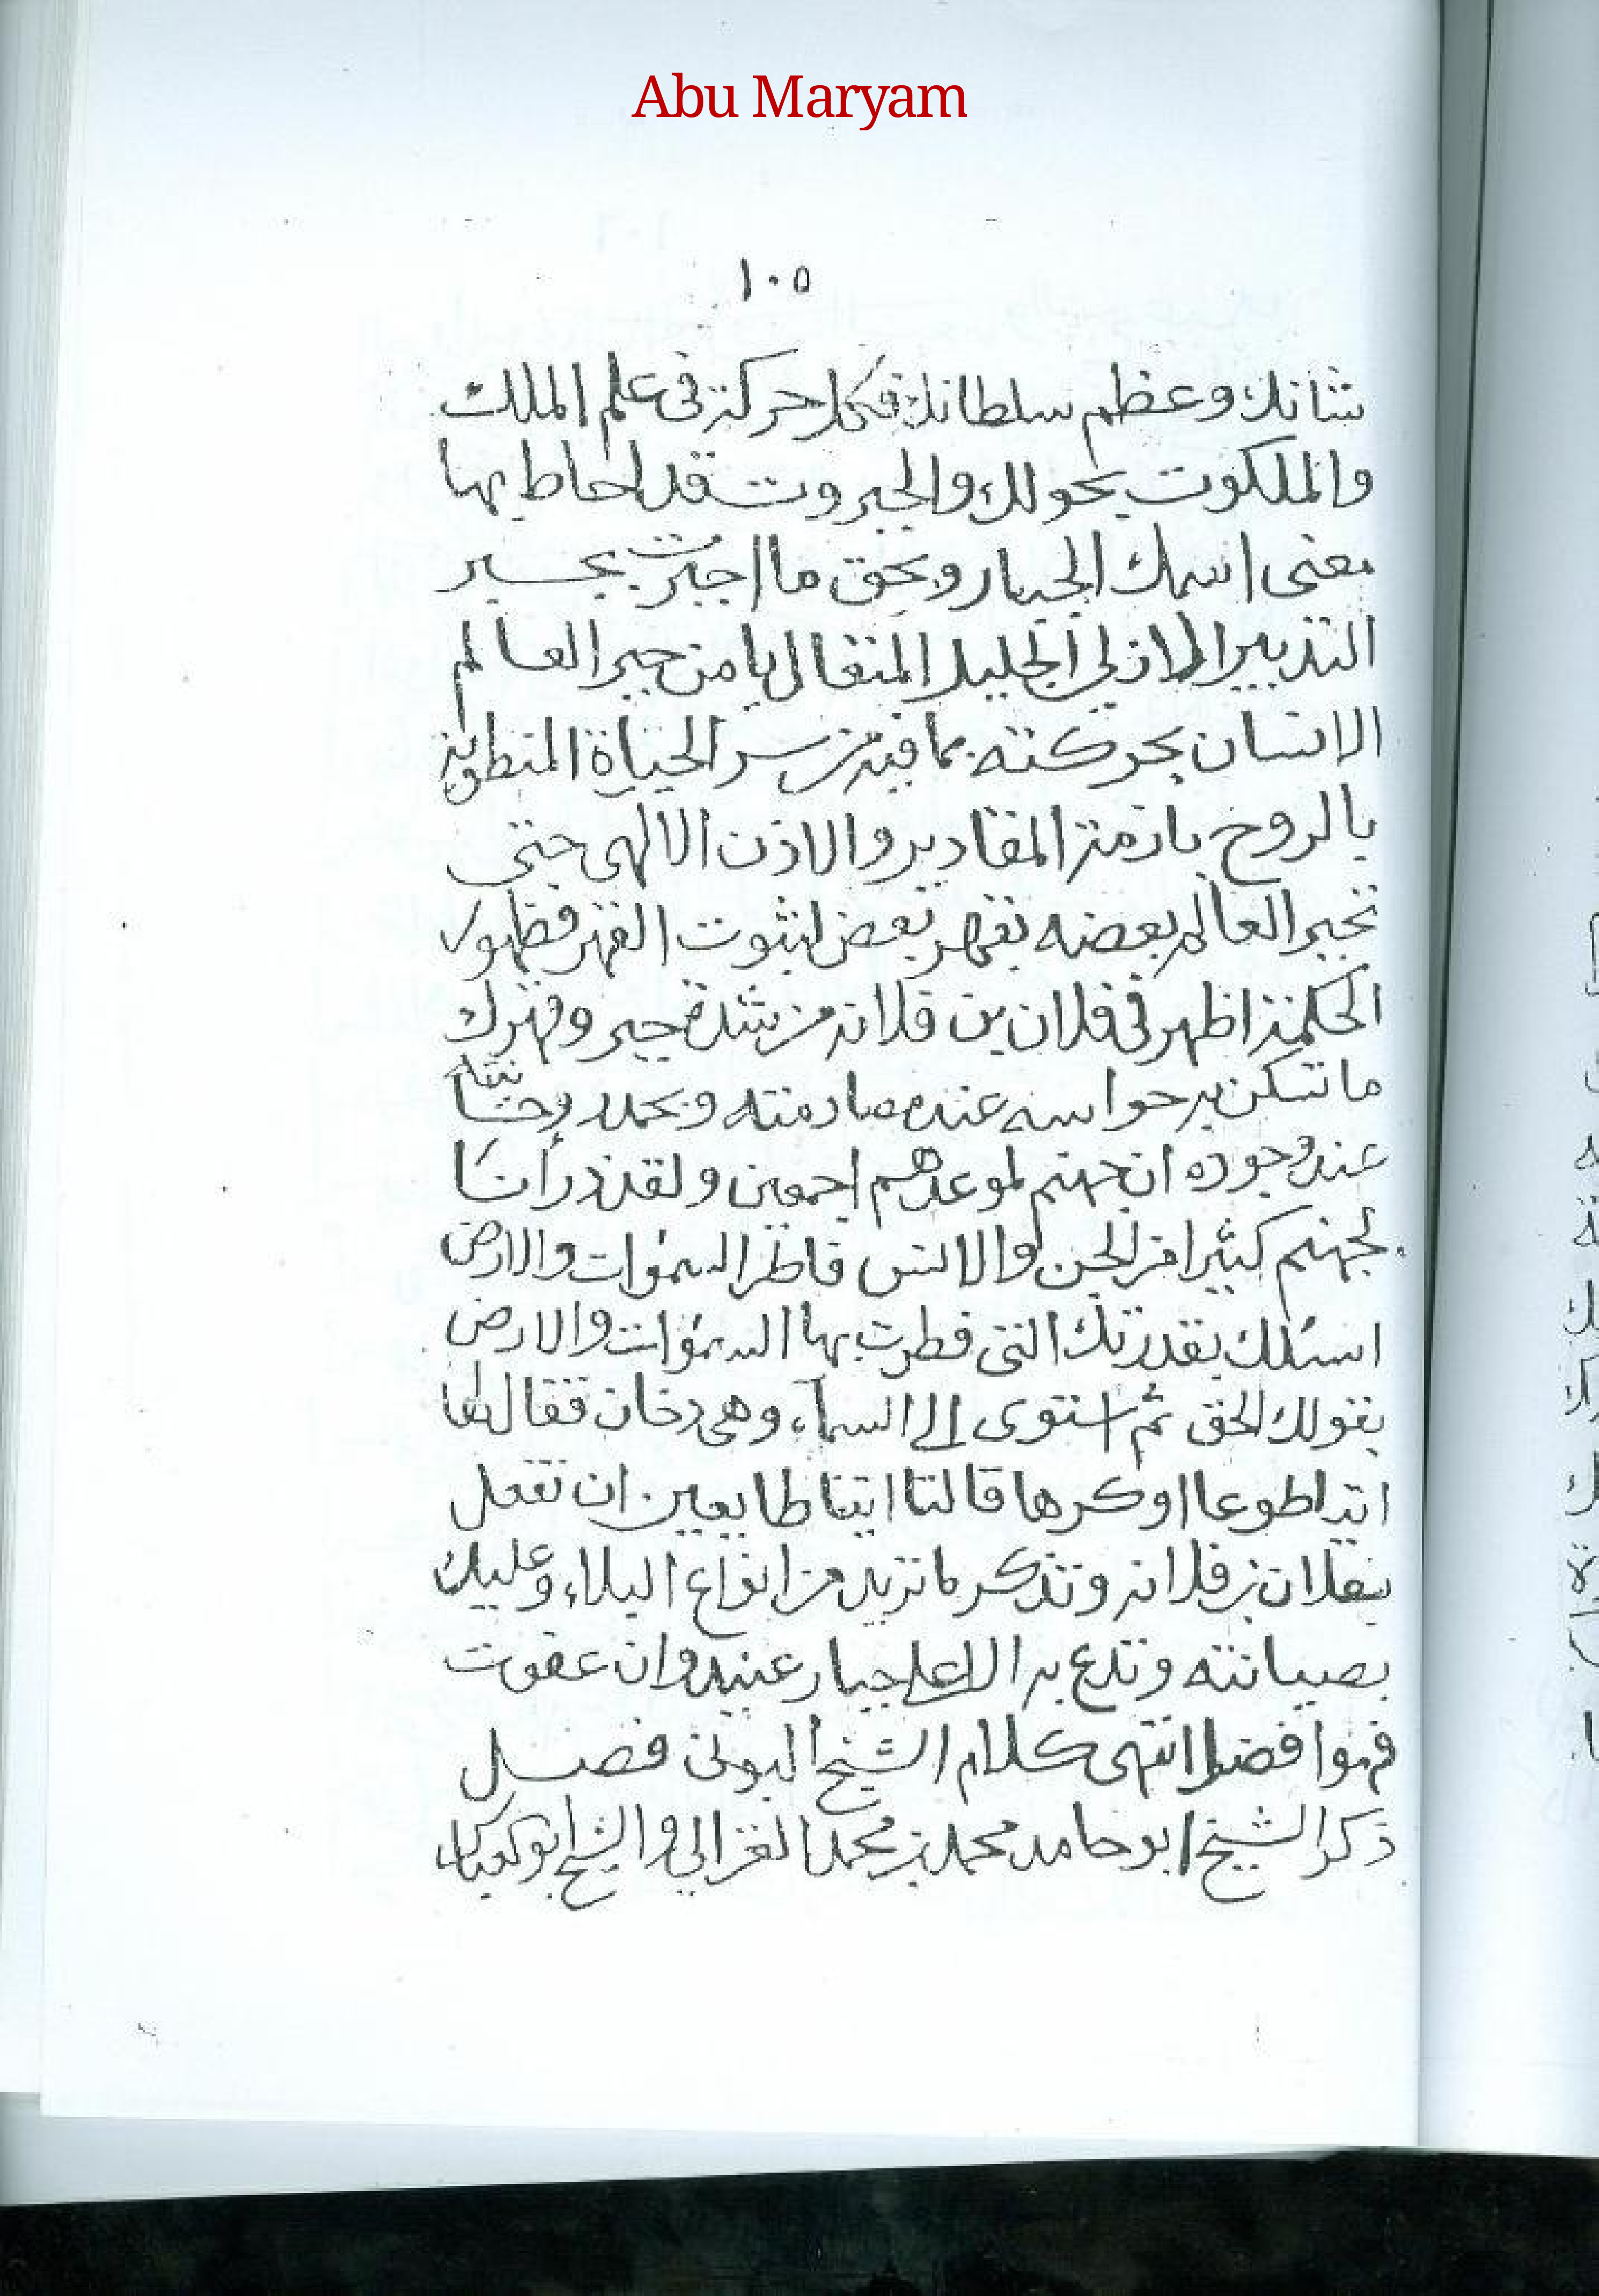 Abu Maryam
١٠٥
شانك وعظم سلطانك فكل حركة فى علم الملك
والملكوت بحولك والجبروت قد احاط بها
معنى اسمك الجبار وبحق ما اجبرت بجسير
التدبير الازلي الجليل المتعالى يا من جبر العالم
الانسان بحركته بما فيه من سر الحياة المنطوية
بالروح بازمة المقادير والاذن الالهى حتى
تجبر العالم بعضه بقهر بعض لثبوت القهر فظهور
الحكمة اظهر فى فلان بن فلانة من شدة جبر وقهرك
ما تسكن به حواسه عند مصادمته وبحمد روحانيته
عند وجوده ان جهنم لموعدهم اجمعين ولقد ذرانا
لجهنم كثيرا من الجن والانس فاطر السموات والارض
اسئلك بقدرتك التى فطرت بها السموات والارض
بقولك الحق ثم استوى إلى السماء وهى دخان فقال لها
ائتيا طوعا اوكرها قالتا اتينا طايعين ان تفعل
بفلان بن فلانة وتذكر ما تريد من انواع البلاء وعليك
بصيانته وتدع به الا على جبار عنيد وان عفوت
فهوا فضل انتهى كلام الشيخ البونى فصل
ذكر الشيخ ابو حامد محمد بن محمد الغزالي والشيخ ابو